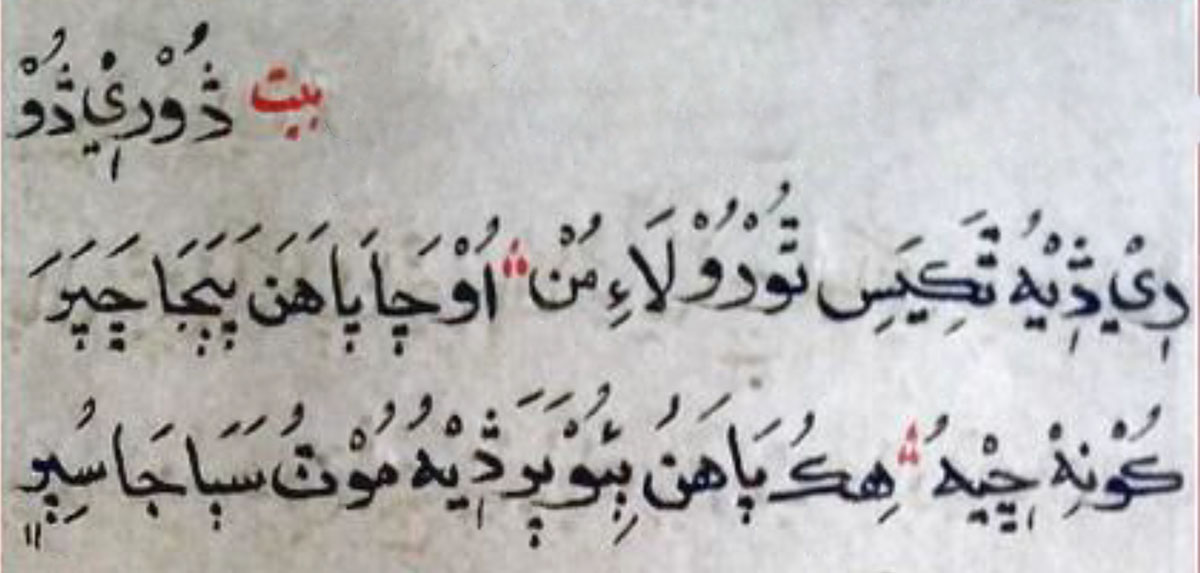 بيت ڎُوْرِيْ ڎُوْ
رِيْ ڎِيْهُ تَكِيَسِ تُوْرُوْلَاءِ مُنْ ؞ اُوْچَا پَاهَنَ پَنِجَا چَپَرَ
كُوْنِهْ چِيْهُ ؞ هِكُ پَاهَنُ بِئُوْ پَرَڎِيْهُ مُوْتُ سَٻَاجَا سُپِرِ